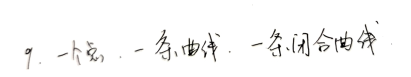 9. 一个点、一条曲线、一条闭合曲线